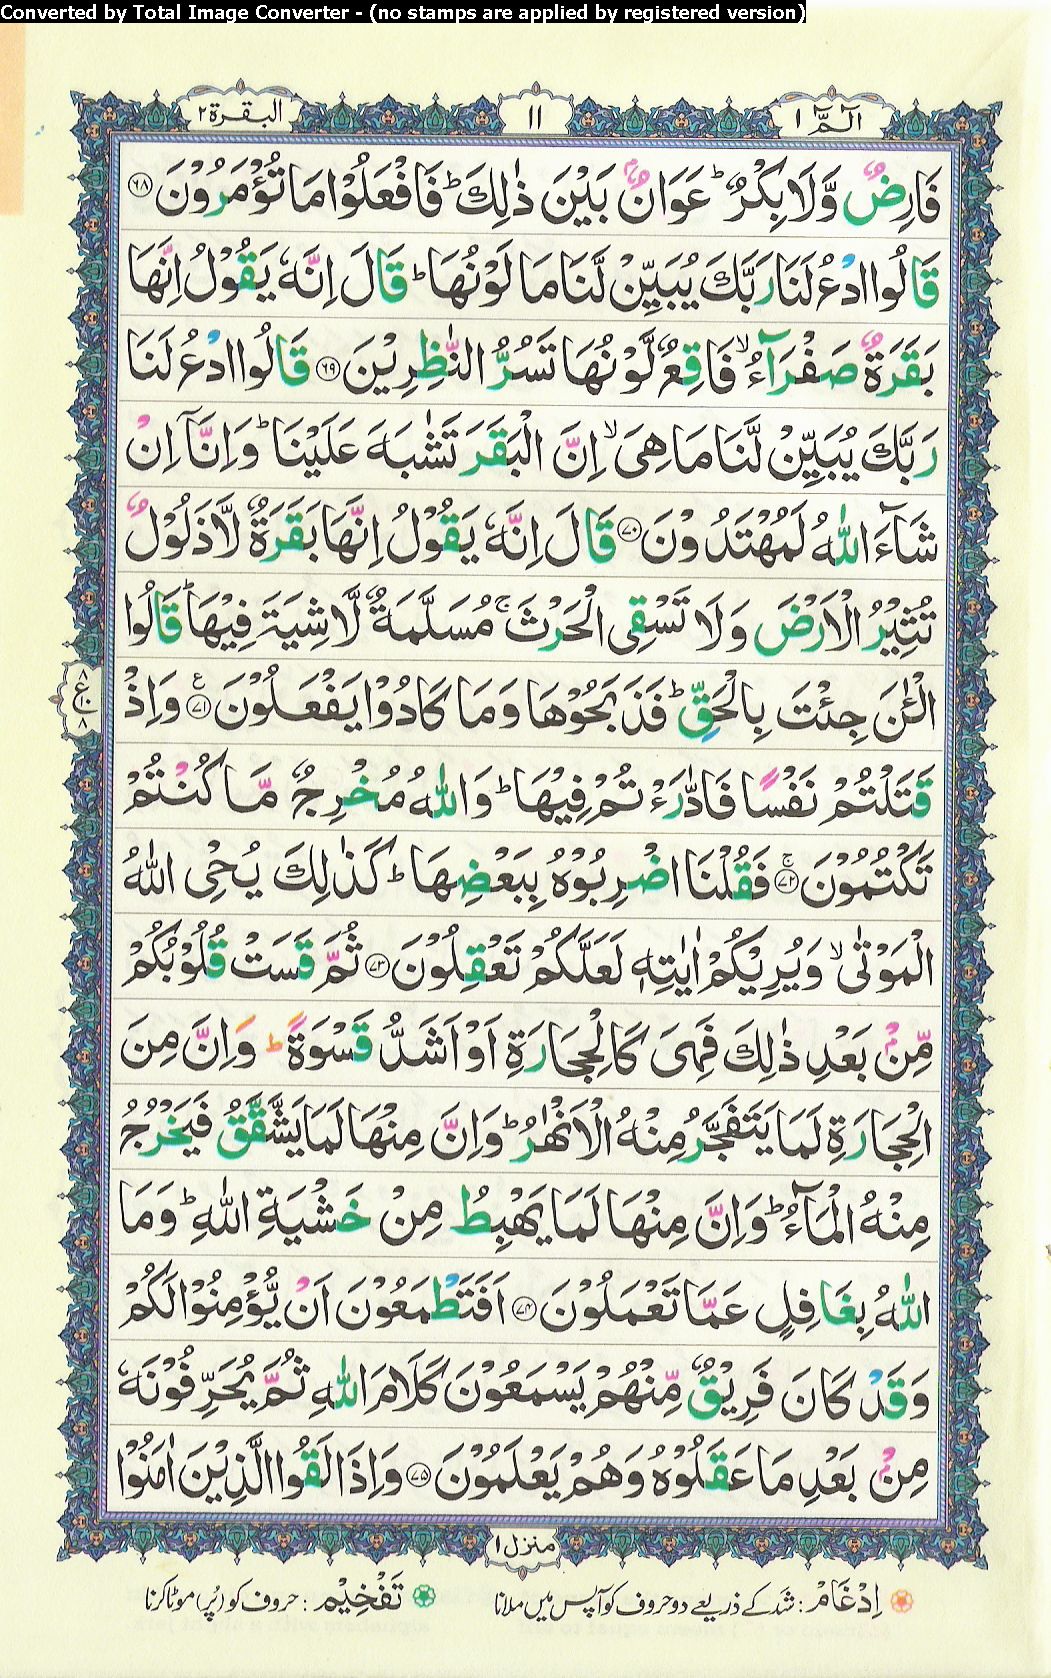 Converted by Total Image Converter - (no stamps are applied by registered version)
الٓمّٓ ١
١١
البقرة ٢
فَارِضٌ وَّلَا بِكْرٌ ؕ عَوَانٌۢ بَيْنَ ذٰلِكَ ؕ فَافْعَلُوْا مَا تُؤْمَرُوْنَ ﴿۶۸﴾
قَالُوا ادْعُ لَنَا رَبَّكَ يُبَيِّنْ لَّنَا مَا لَوْنُهَا ؕ قَالَ اِنَّهٗ يَقُوْلُ اِنَّهَا
بَقَرَةٌ صَفْرَآءُ ۙ فَاقِعٌ لَّوْنُهَا تَسُرُّ النّٰظِرِيْنَ ﴿۶۹﴾ قَالُوا ادْعُ لَنَا
رَبَّكَ يُبَيِّنْ لَّنَا مَا هِىَ ۙ اِنَّ الْبَقَرَ تَشٰبَهَ عَلَيْنَا ؕ وَاِنَّاۤ اِنْ
شَآءَ اللّٰهُ لَمُهْتَدُوْنَ ﴿۷۰﴾ قَالَ اِنَّهٗ يَقُوْلُ اِنَّهَا بَقَرَةٌ لَّا ذَلُوْلٌ
تُثِيْرُ الْاَرْضَ وَلَا تَسْقِى الْحَرْثَ ۚ مُسَلَّمَةٌ لَّاشِيَةَ فِيْهَا ؕ قَالُوا
الْـٰٔنَ جِئْتَ بِالْحَقِّ ؕ فَذَبَحُوْهَا وَمَا كَادُوْا يَفْعَلُوْنَ ﴿۷۱﴾ ع وَاِذْ
٨ ع ١٠ ٨
قَتَلْتُمْ نَفْسًا فَادّٰرَءْتُمْ فِيْهَا ؕ وَاللّٰهُ مُخْرِجٌ مَّا كُنْتُمْ
تَكْتُمُوْنَ ﴿۷۲﴾ ۚ فَقُلْنَا اضْرِبُوْهُ بِبَعْضِهَا ؕ كَذٰلِكَ يُحْىِ اللّٰهُ
الْمَوْتٰى ۙ وَيُرِيْكُمْ اٰيٰتِهٖ لَعَلَّكُمْ تَعْقِلُوْنَ ﴿۷۳﴾ ثُمَّ قَسَتْ قُلُوْبُكُمْ
مِّنْۢ بَعْدِ ذٰلِكَ فَهِىَ كَالْحِجَارَةِ اَوْ اَشَدُّ قَسْوَةً ؕ وَاِنَّ مِنَ
الْحِجَارَةِ لَمَا يَتَفَجَّرُ مِنْهُ الْاَنْهٰرُ ؕ وَاِنَّ مِنْهَا لَمَا يَشَّقَّقُ فَيَخْرُجُ
مِنْهُ الْمَآءُ ؕ وَاِنَّ مِنْهَا لَمَا يَهْبِطُ مِنْ خَشْيَةِ اللّٰهِ ؕ وَمَا
اللّٰهُ بِغَافِلٍ عَمَّا تَعْمَلُوْنَ ﴿۷۴﴾ اَفَتَطْمَعُوْنَ اَنْ يُّؤْمِنُوْا لَكُمْ
وَقَدْ كَانَ فَرِيْقٌ مِّنْهُمْ يَسْمَعُوْنَ كَلَامَ اللّٰهِ ثُمَّ يُحَرِّفُوْنَهٗ
مِنْۢ بَعْدِ مَا عَقَلُوْهُ وَهُمْ يَعْلَمُوْنَ ﴿۷۵﴾ وَاِذَا لَقُوا الَّذِيْنَ اٰمَنُوْا
منزل ١
اِدْغَامْ: شَد کے ذریعے دو حروف کو آپس میں ملانا
تَفْخِيْمْ: حروف کو (پُر) موٹا کرنا